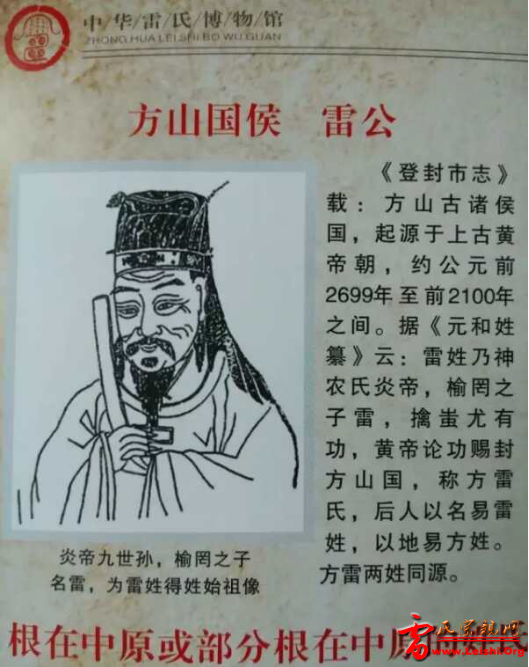 中/华/雷/氏/博/物/馆
ZHONG HUA LEI SHI BO WU GUAN
方山国侯 雷公
《登封市志》
载：方山古诸侯
国，起源于上古黄
帝朝，约公元前
2699年至前2100年
之间。据《元和姓
纂》云：雷姓乃神
农氏炎帝，榆罔之
子雷，擒蚩尤有
功，黄帝论功赐封
方山国，称方雷
氏，后人以名易雷
姓，以地易方姓。
方雷两姓同源。
炎帝九世孙，榆罔之子
名雷，为雷姓得姓始祖像
根在中原或部分根在中原
www.Leishi.Org